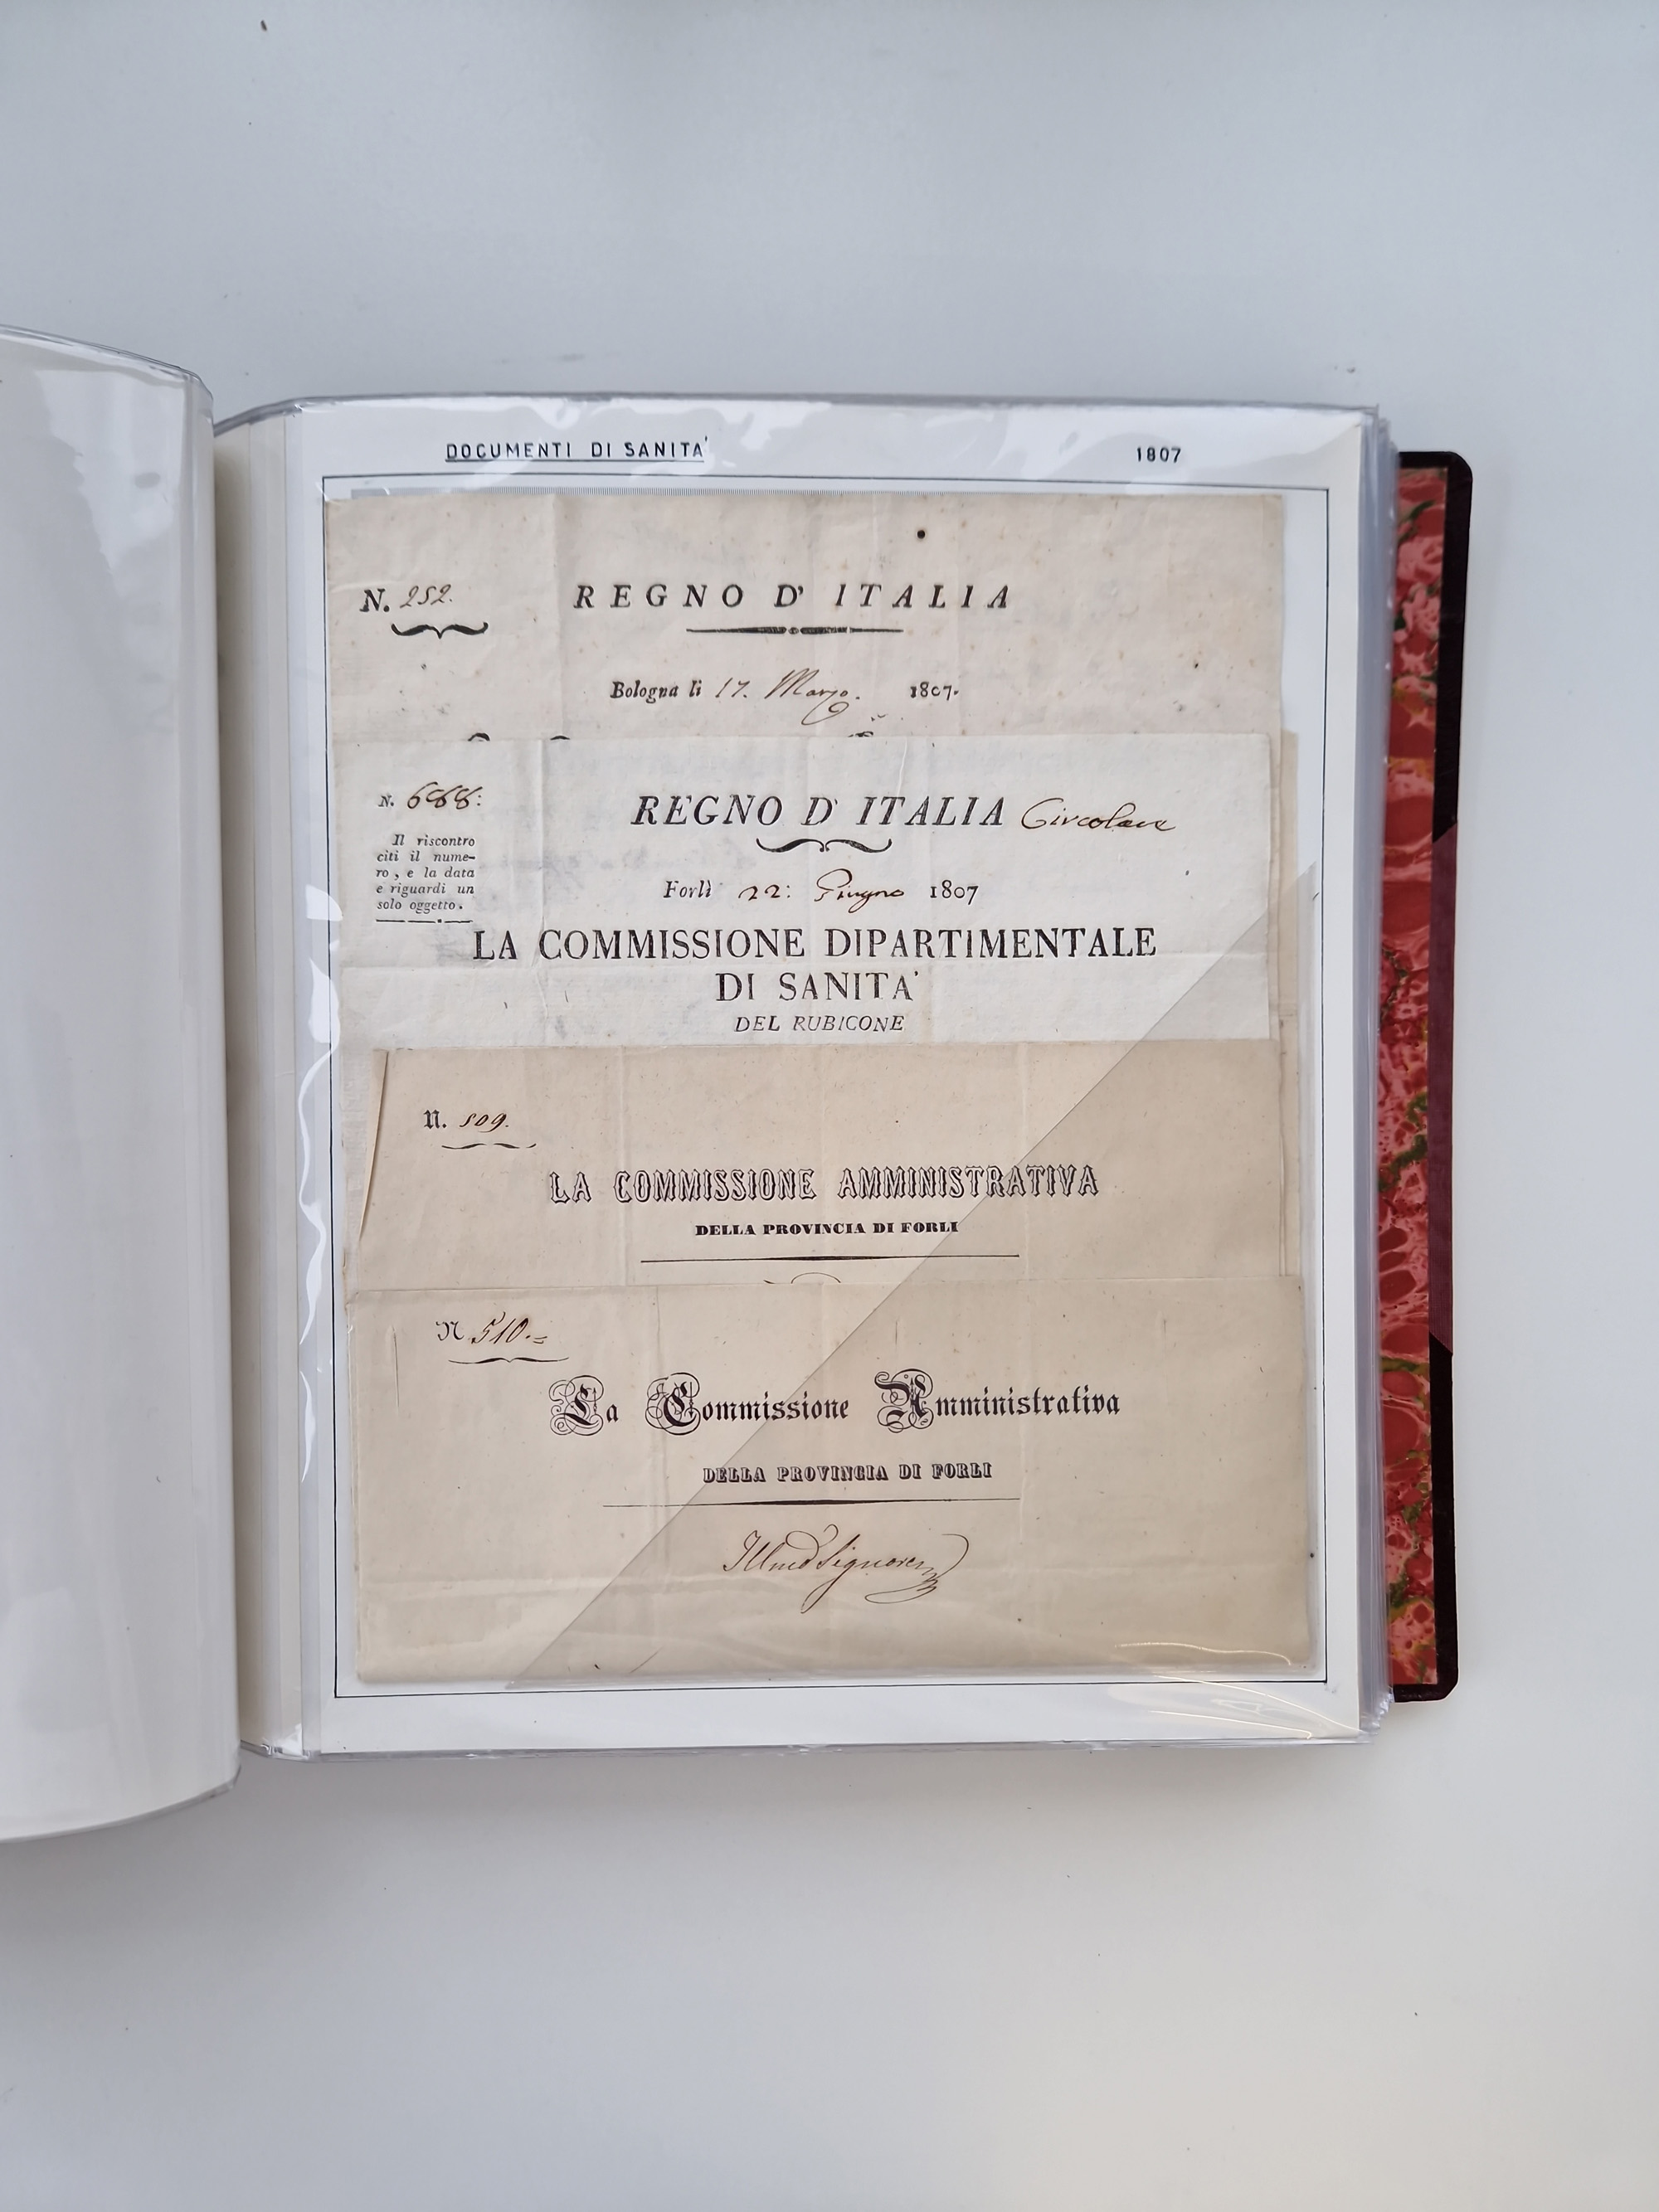 DOCUMENTI DI SANITA' 1807
N. 252. REGNO D' ITALIA
Bologna li 17. Marzo. 1807.
N. 688: REGNO D' ITALIA Circolare
Il riscontro
citi il nume-
ro, e la data
e riguardi un
solo oggetto.
Forlì 22: Giugno 1807
LA COMMISSIONE DIPARTIMENTALE
DI SANITA'
DEL RUBICONE
N. 509.
LA COMMISSIONE AMMINISTRATIVA
DELLA PROVINCIA DI FORLI
N 510.=
La Commissione Amministrativa
DELLA PROVINCIA DI FORLI
Illmo Signore